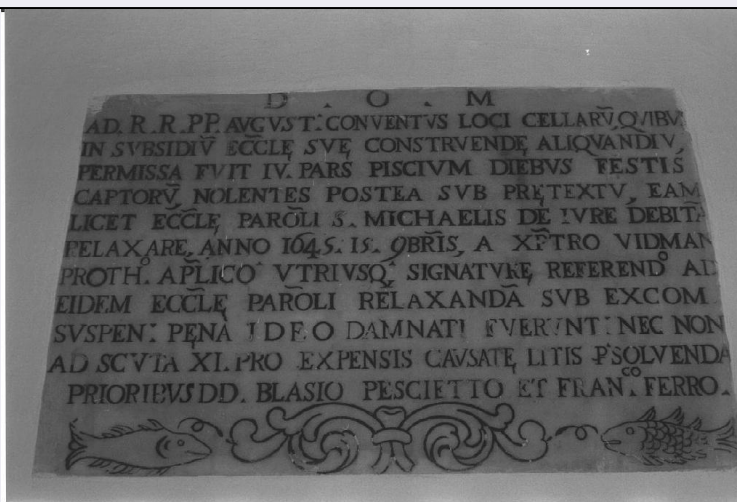 D . O . M
AD. R.R.PP. AVGVST. CONVENTVS LOCI CELLARV̄, QVIBV
IN SVBSIDIV̄ ECCLĘ SVĘ CONSTRVENDĘ ALIQVANDIV,
PERMISSA FVIT IV. PARS PISCIVM DIEBVS FESTIS
CAPTORV̄, NOLENTES POSTEA SVB PRĘTEXTV, EAM
LICET ECCLĘ PAROLI S. MICHAELIS DE IVRE DEBITĀ
RELAXARE, ANNO 1645. 15. 9BRĪS, A XP̄TRO VIDMAN
PROTHº. AP̄LICO VTRIVSQ; SIGNATVRĘ REFERENDº AD
EIDEM ECCLĘ PAROLI RELAXANDĀ SVB EXCOM
SVSPEN: PĘNA IDEO DAMNATI FVERVNT: NEC NON
AD SCVTA XI. PRO EXPENSIS CAVSATĘ LITIS P̄SOLVENDA
PRIORIBVS DD. BLASIO PESCIETTO ET FRAN.ᶜᵒ FERRO.